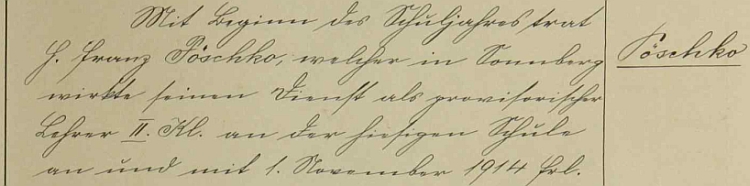 Mit Beginn des Schuljahres trat
H. Franz Pöschko, welcher in Sonnberg
wirkte seinen Dienst als provisorischer
Lehrer II. Kl. an der hiesigen Schule
an und mit 1. November 1914 Frl.
Pöschko